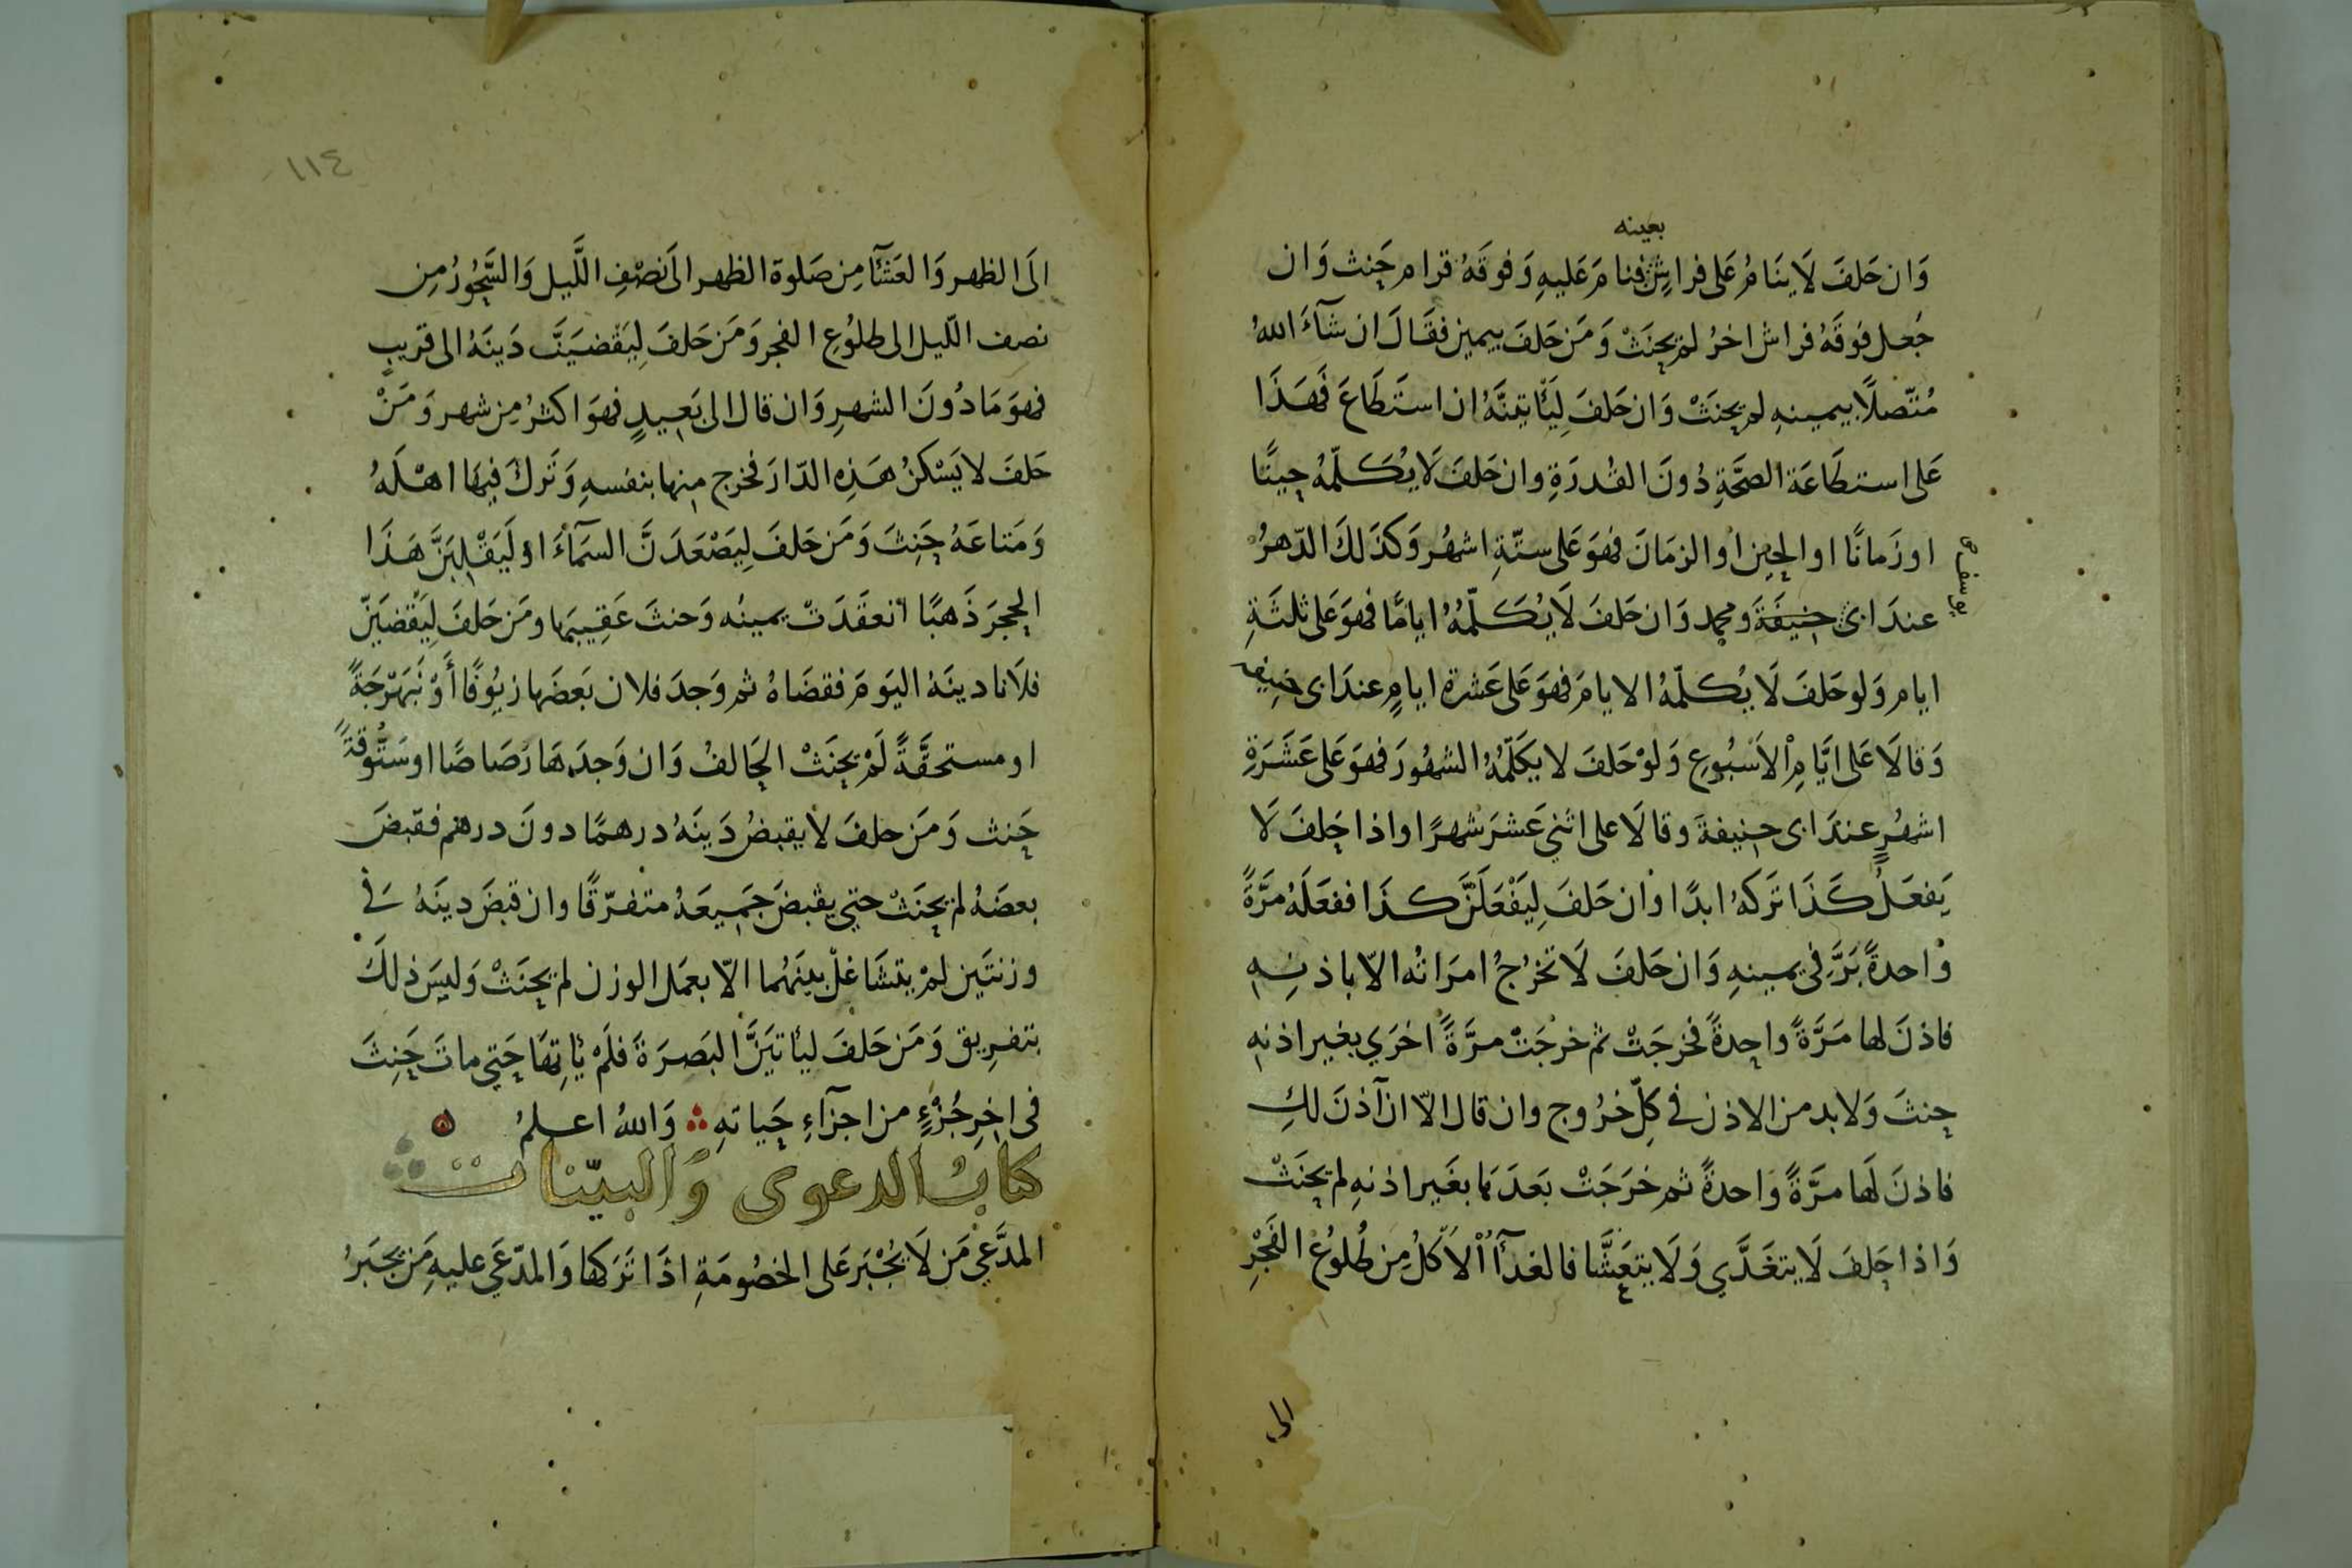 بعينه
وَان حَلفَ لَا ينَامُ عَلى فراشٍ فنامَ عَليهِ وَفوقَهُ قرام حَنث وَان
جُعل فوقَهُ فراش اخرُ لم يحنَثْ وَمَن حَلفَ بيمين فقَالَ ان شآءَ اللهُ
مُتّصلًا بيمينهِ لم يحنَثْ وَان حَلفَ لِيَأتينَّهُ ان استَطَاعَ فَهَذَا
عَلى استطَاعَة الصحَّةِ دُونَ القُدرَةِ وان حَلفَ لَا يُكَلّمُه حِينًا
اوزَمانًا او الحِين او الزمَانَ فهوَ عَلى ستّةِ اشهُر وَكذَلكَ الدّهرُ
عندَ ابى حنيفَةَ ومحمد وَان حَلفَ لَا يُكَلّمُهُ ايامًا فهوَ عَلى ثلثَةِ
يوسف صح
ايام وَلو حَلفَ لَا يُكلّمُه الايامَ فهوَ عَلى عَشرة ايامٍ عندَ ابى حنيفه
وَقالَا عَلى ايَّامِ الاَسْبُوعِ وَلوْ حَلفَ لا يكَلّمُهُ الشهُورَ فهوَ عَلى عَشَرَةِ
اشهُرٍ عندَ ابى حنِيفةَ وقالَا على اثنيْ عَشرَ شهرًا واذا حَلفَ لَا
يَفعَلُ كَذَا تَركهُ ابدًا وان حَلفَ لِيَفْعَلَنَّ كذَا ففعَلَهُ مَرَّةً
وَاحدةً بَرَّ فى يمينهِ وَان حَلفَ لَا تخرُجُ امرَاتُه الّا باذنِهِ
فاذنَ لها مَرَّةً واحِدةً فخرجَتْ ثم خرجَتْ مرَّةً اخرَي بغير اذنهِ
حنثَ وَلا بد من الاذن في كلّ خرُوج وان قال الّا ان آذنَ لكِ
فاذنَ لَها مرَّةً وَاحدةً ثم خرَجَتْ بَعدَهَا بغَير اذنهِ لم يحنَثْ
وَاذا حَلفَ لَا يتغَدَّي وَلَا يتعَشَّا فالغدآءُ الاَكلُ مِن طُلوُع الفَجْرِ
الى
١١٤
الَى الظهر وَالعَشَآءُ مِن صَلوة الظهر الَى نصْفِ اللَّيل وَالسَّحُورُ مِن
نصِف اللّيل الى طلوُعِ الفجر وَمَن حَلفَ لِيَقْضيَنَّ دَينَهُ الى قريبٍ
فهوَ مَا دُونَ الشهرِ وَان قال الى بَعيدٍ فهوَ اكثرُ مِن شهر وَمَنْ
حَلفَ لا يَسْكنُ هَذِه الدّارَ فخرج منها بنفسهِ وَتَركَ فيهَا اهْلَهُ
وَمَتاعَهُ حَنِثَ وَمَن حَلفَ لِيَصْعَدَنَّ السمَآءَ اوْ لَيَقْلِبَنَّ هَذَا
الحجرَ ذَهبًا انعقَدَتْ يمينُه وَحنثَ عَقِيبَها ومَن حَلفَ لِيَقْضيَنّ
فلَانا دينَهُ اليَومَ فقضَاهُ ثم وَجدَ فلان بَعضَها زيُوفًا أَوْ نَبَهْرَجَةً
او مستحقَّةً لَمْ يحنَثْ الحَالفُ وَان وَجدَهَا رَصَاصًا او سَتُّوقةً
حَنث وَمَن حلفَ لا يقبضُ دَينَهُ درهمًا دونَ درهم فقبضَ
بعضَهُ لم يحنَثْ حتي يقبضَ جَمِيعَهُ متفرّقًا وان قبضَ دينَهُ في
وزنتَين لمْ يتشَاغلْ بينَهُما الّا بعمَل الوزن لم يحنَثْ وَليسَ ذلكَ
بتفرِيق وَمَن حَلفَ ليأتيَنَّ البَصرَةَ فلَمْ يأتِهَا حَتي ماتَ حَنِثَ
فى اخِرِ جُزْءٍ من اجزآءِ حَياتهِ وَاللهُ اعلمُ
كتابُ الدعوى وَالبيّنات
المدَّعِي مَن لَا يُجْبَر عَلى الخصُومَةِ اذَا تَركها وَالمدّعَي عليهِ مَن يجبَرُ